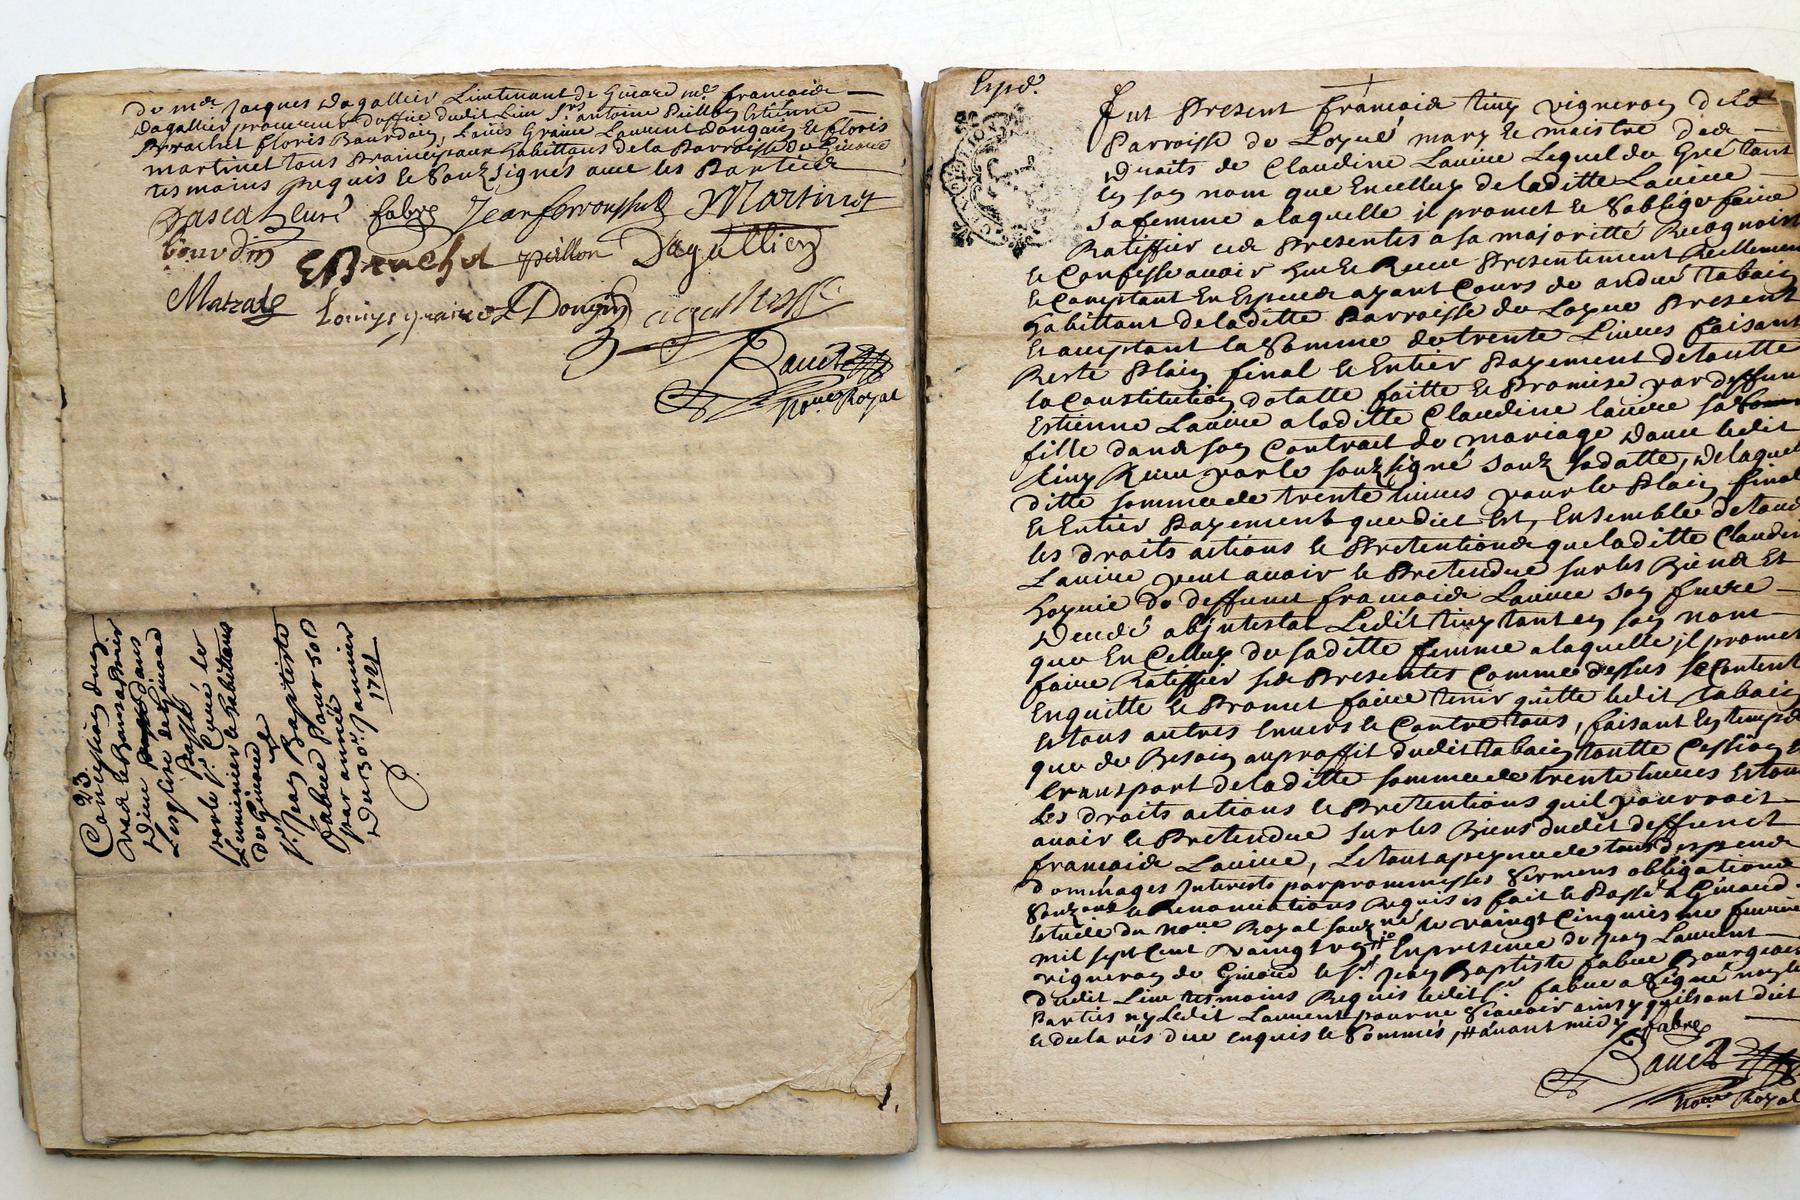 De mre Jacques Dagallier Lieutenant de Giuord mre francois
Dagallier procureur doffice dudit Lieu Srs antoine Peillon Estienne
Brachet floris Bourdain, Louis Graine Laurent dongain et floris
martinet tous Principaux habittans de la Parroisse de Giuord
tesmoins Requis et Souz signés auec les Parties
Dascal curé fabre Jean Martinet
bourdin EBrachet peillon Dagallier
Matrat Louiys graine L Dongin
Bauet
Nore Royal
23.
Concession dun
Droit de Banc a
Dieu dans
Lesglise de Giuord
Passé
par le Sr Curé le
Luminier et habitans
de Giuord
a
Sr Jean Baptiste
fabre Pour 50s
par année
Du 30e Januier
1721
Expé.
Fut Present francois tiny vigneron de la
Parroisse de Loyre mary et maistre des
Droits de Claudine Lauiue Lequel de Gré tant
en son nom que En celluy de laditte Lauiue
Sa femme a laquelle il promet et Soblige faire
Ratiffier ces Presentes a sa majoritté Recognoist
et Confesse auoir heu et Receu Presentement Reellement
et Comptant En Especes ayant Cours de andré tabain
habittant de laditte Parroisse de Loyre Present
et aceptant la Somme de trente Liures faisant
Reste Plain final et Entier Payement de toutte
la Constitution dotalle faitte et Promise par deffunt
Estienne Lauiue a laditte Claudine lauiue sa
fille dans son Contrait de mariage Dauec ledit
tiny Receu par le souz signé souz sa datte, de laquelle
ditte somme de trente liures pour le Plain final
et Entier Payement que dict est, Ensemble de tous
les droits actions et Pretentions que laditte Claudine
Lauiue peut auoir et Pretendre sur les Biens Et
hoyrie de deffunt francois Lauiue son frere
Decedé abjntestat Ledit tiny tant en son nom
que En Celluy de saditte femme a laquelle jl promet
faire Ratiffier ses Presentes Comme dessus se Content
Enquitte et Promet faire tenir quitte ledit tabain
et tous autres Enuers et Contre tous, faisant En temps
que de Besoin au proffit dudit tabain toutte Cession et
transport de laditte somme de trente liures et tous
les droits actions et Pretentions quil pourroit
auoir et Pretendre sur les Biens dudit deffunct
francois Lauiue, Le tout a peyne de tous despens
dommages Interests par prommesses Sermens obligations
Souzons et Renonciations Requises fait et Passé a Giuord
estude du nore Royal souz né le vaingt cinquiesme feurier
mil sept Cent vaingt En presence de jean Laurent
vigneron de Giuord et Sr Jean Baptiste fabre Bourgeois
dudit Lieu tesmoins Requis ledit Sr fabre a Signé non les
Parties ny Ledit Laurent pour ne Scauoir ainsy quils ont dict
et declarés de ce enquis et Sommés, auant midy fabre
Bauet
Nore Royal